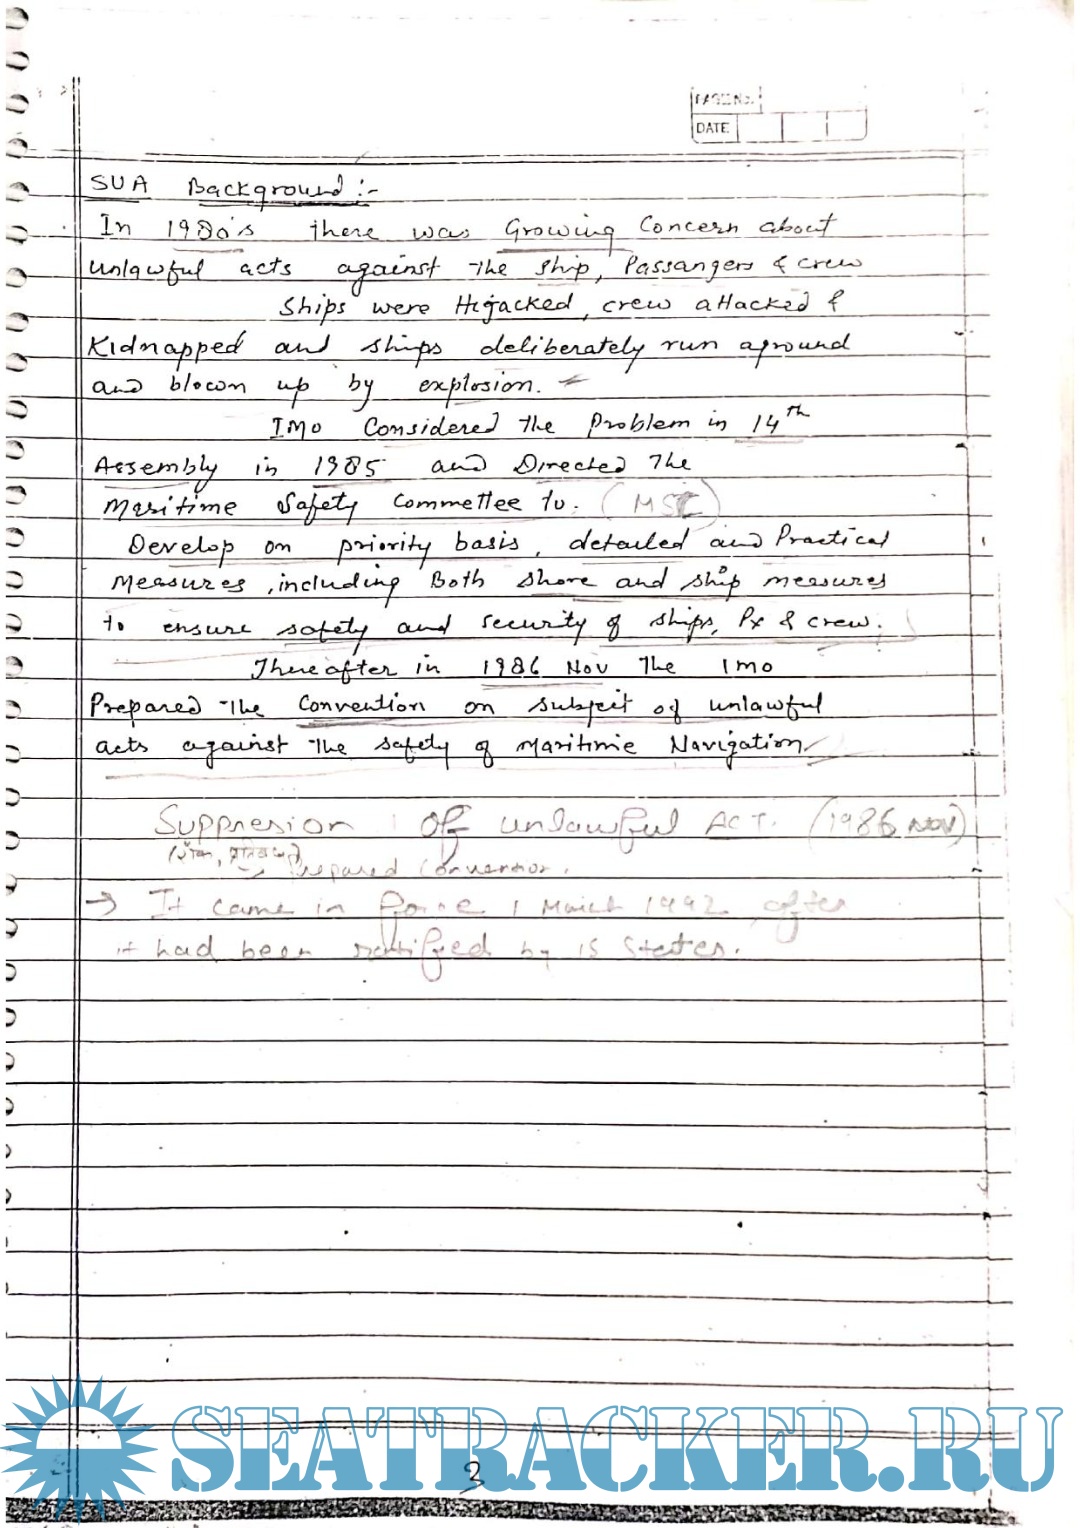 PAGE No.
DATE
SUA Background :-
In 1980's there was Growing Concern about
unlawful acts against the ship, Passangers & crew
Ships were Hijacked, crew attacked &
Kidnapped and ships deliberately run aground
and blown up by explosion.
IMO Considered the Problem in 14th
Assembly in 1985 and Directed The
Maritime Safety Committee to. (MSC)
Develop on priority basis, detailed and Practical
Measures, including Both shore and ship measures
to ensure safety and security of ships, Px & crew.
Thereafter in 1986 Nov The Imo
Prepared The Convention on subject of unlawful
acts against The safety of Maritime Navigation.
Suppresion of unlawful ACT. (1986 NOV)
prepared Convention.
→ It came in force 1 March 1992, after
it had been ratified by 15 States.
SEATRACKER.RU
3